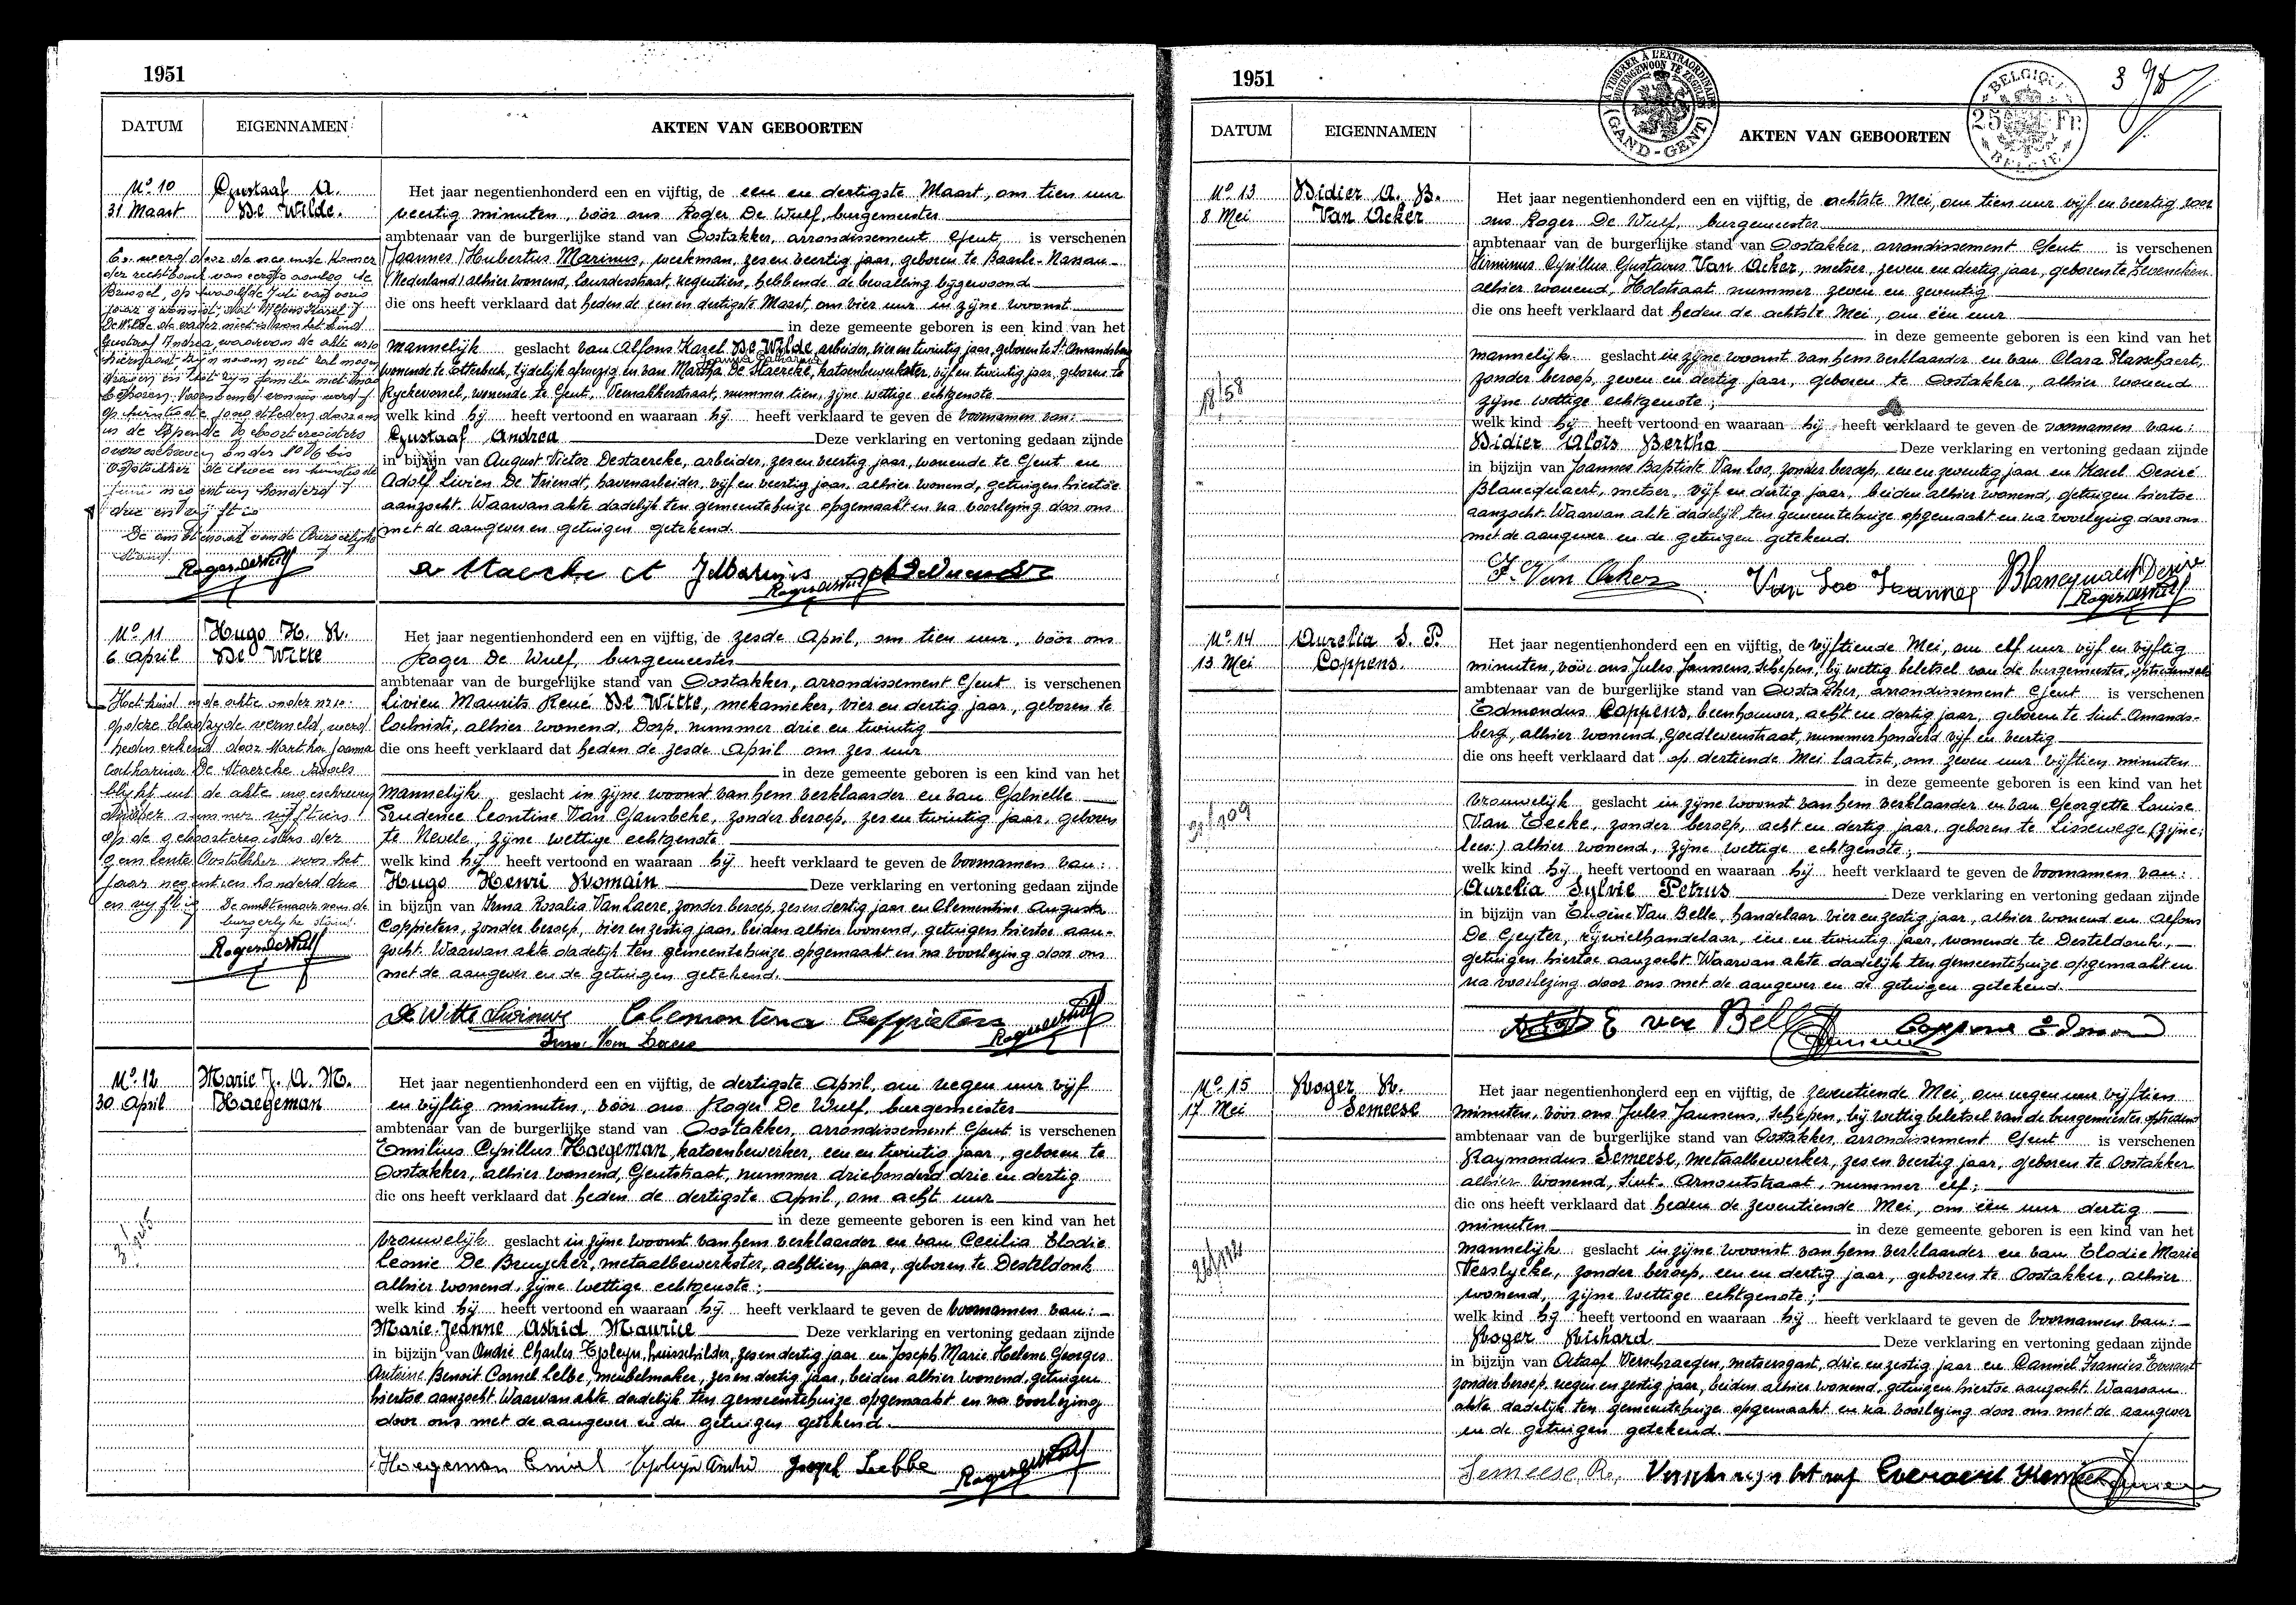 1951
DATUM EIGENNAMEN AKTEN VAN GEBOORTEN
No 10 Gustaaf A.
31 Maart De Wilde.
Het jaar negentienhonderd een en vijftig, de een en dertigste Maart, om tien uur
veertig minuten, vóór ons Roger De Wulf, burgemeester
ambtenaar van de burgerlijke stand van Oostakker, arrondissement Gent, is verschenen
Joannes Hubertus Marinus, werkman, zes en veertig jaar, geboren te Baarle-Nassau
(Nederland) alhier wonend, Lourdesstraat, negentien, hebbende de bevalling bijgewoond
die ons heeft verklaard dat heden de een en dertigste Maart, om vier uur in zijne woonst
in deze gemeente geboren is een kind van het
mannelijk geslacht van Alfons Karel De Wilde, arbeider, vier en twintig jaar, geboren te St. Amandsberg
Joanna Catharina
wonende te Etterbeek, tijdelijk afwezig en van Martha De Staercke, katoenbewerkster, vijf en twintig jaar, geboren te
Ryckevorsel, wonende te Gent, nummer tien, zijne wettige echtgenote
welk kind hij heeft vertoond en waaraan hij heeft verklaard te geven de voornamen van:
Gustaaf Andrea Deze verklaring en vertoning gedaan zijnde
in bijzijn van August Victor Destaercke, arbeider, zes en veertig jaar, wonende te Gent en
Adolf Livien De Vriendt, havenarbeider, vijf en veertig jaar, alhier wonend, getuigen hiertoe
aanzocht. Waarvan akte dadelijk ten gemeentehuize opgemaakt en na voorlezing door ons
met de aangever en getuigen getekend.
Bij werd door de
der rechtbank van eerste aanleg te
Brussel, op twaalfde Juli
De Wilde de vader niet is van het kind
Gustaaf Andrea, waarvan de akte
hiernaast, zijn naam niet zal mogen
dragen en tot zijn familie niet
behoren.
De ambtenaar van de Burgerlijke
stand.
No 11 Hugo H. R.
6 April De Witte
Het jaar negentienhonderd een en vijftig, de zesde April, om tien uur, vóór ons
Roger De Wulf, burgemeester
ambtenaar van de burgerlijke stand van Oostakker, arrondissement Gent is verschenen
Livien Maurits René De Witte, mekanieker, vier en dertig jaar, geboren te
Lochristi, alhier wonend, Dorp, nummer drie en twintig
die ons heeft verklaard dat heden de zesde April om zes uur
in deze gemeente geboren is een kind van het
mannelijk geslacht in zijne woonst van hem verklaarder en van Gabrielle
Prudence Leontine Van Gansbeke, zonder beroep, zes en twintig jaar, geboren
te Nevele, zijne wettige echtgenote
welk kind hij heeft vertoond en waaraan hij heeft verklaard te geven de voornamen van:
Hugo Henri Romain Deze verklaring en vertoning gedaan zijnde
in bijzijn van Irma Rosalia Van Laere, zonder beroep, zes en dertig jaar en Clementine Augusta
Coppieters, zonder beroep, vier en zestig jaar, beiden alhier wonend, getuigen hiertoe aan-
zocht. Waarvan akte dadelijk ten gemeentehuize opgemaakt en na voorlezing door ons
met de aangever en de getuigen getekend.
Het kind in de akte onder nr 10
op deze bladzyde vermeld, werd
heden erkend door Martha Joanna
Catharina De Staercke zooals
blijkt uit de akte ingeschreven
nummer vijftien
op de geboorteregisters der
gemeente Oostakker voor het
jaar negentien honderd drie
en vijftig De ambtenaar van de
burgerlyke stand.
Clementina Coppieters
Irma Van Laere
No 12 Marie J. A. M.
30 April Haegeman
Het jaar negentienhonderd een en vijftig, de dertigste April, om negen uur vijf
en vijftig minuten, vóór ons Roger De Wulf, burgemeester
ambtenaar van de burgerlijke stand van Oostakker, arrondissement Gent is verschenen
Emilius Cyrillus Haegeman, katoenbewerker, een en twintig jaar, geboren te
Oostakker, alhier wonend, Gentstraat, nummer driehonderd drie en dertig
die ons heeft verklaard dat heden de dertigste April, om acht uur
in deze gemeente geboren is een kind van het
vrouwelijk geslacht in zijne woonst van hem verklaarder en van Cecilia Elodie
Leonie De Bruycker, metaalbewerkster, achttien jaar, geboren te Desteldonk
alhier wonend, zijne wettige echtgenote;
welk kind hij heeft vertoond en waaraan hij heeft verklaard te geven de voornamen van:
Marie-Jeanne Astrid Maurice Deze verklaring en vertoning gedaan zijnde
in bijzijn van André Charles huisschilder, zes en dertig jaar en Joseph Marie Helena Georges
Antoine Benoit Cornel Lebbe, meubelmaker, zes en dertig jaar, beiden alhier wonend, getuigen
hiertoe aanzocht. Waarvan akte dadelijk ten gemeentehuize opgemaakt en na voorlezing
door ons met de aangever en de getuigen getekend.
Haegeman Emiel Joseph Lebbe
1951
A TIMBRER A L'EXTRAORDINAIRE
BUITENGEWOON TE ZEGELEN
(GAND-GENT)
BELGIQUE
25 Fr.
BELGIE
3
DATUM EIGENNAMEN AKTEN VAN GEBOORTEN
No 13 Didier A. B.
8 Mei Van Acker
Het jaar negentienhonderd een en vijftig, de achtste Mei, om tien uur vijf en veertig voor
ons Roger De Wulf, burgemeester
ambtenaar van de burgerlijke stand van Oostakker, arrondissement Gent is verschenen
Firminus Cyrillus Gustavus Van Acker, metser, zeven en dertig jaar, geboren te Zeveneken
alhier wonend, Holstraat nummer zeven en zeventig
die ons heeft verklaard dat heden de achtste Mei, om één uur
in deze gemeente geboren is een kind van het
mannelijk geslacht in zijne woonst van hem verklaarder en van Clara Plasschaert,
zonder beroep, zeven en dertig jaar, geboren te Oostakker, alhier wonend
zijne wettige echtgenote;
welk kind hij heeft vertoond en waaraan hij heeft verklaard te geven de voornamen van:
Didier Aloïs Bertha Deze verklaring en vertoning gedaan zijnde
in bijzijn van Joannes Baptiste Van Loo, zonder beroep, een en zeventig jaar en Karel Desiré
Blancquaert, metser, vijf en dertig jaar, beiden alhier wonend, getuigen hiertoe
aanzocht. Waarvan akte dadelijk ten gemeentehuize opgemaakt en na voorlezing door ons
met de aangever en de getuigen getekend.
18/58
F. Van Acker Van Loo Joannes Blancquaert Desire
No 14 Aurelia S. P.
13 Mei Coppens.
Het jaar negentienhonderd een en vijftig, de vijftiende Mei, om elf uur vijf en vijftig
minuten, vóór ons Jules Janssens, Schepen, bij wettig beletsel van de burgemeester, optredend als
ambtenaar van de burgerlijke stand van Oostakker, arrondissement Gent is verschenen
Edmondus Coppens, beenhouwer, acht en dertig jaar, geboren te Sint-Amands-
berg, alhier wonend, Goedlevenstraat, nummer honderd vijf en veertig
die ons heeft verklaard dat op dertiende Mei laatst, om zeven uur vijftien minuten
in deze gemeente geboren is een kind van het
vrouwelijk geslacht in zijne woonst van hem verklaarder en van Georgette Louise
Van Eecke, zonder beroep, acht en dertig jaar, geboren te Lissewege (zijne:
lees:) alhier wonend, zijne wettige echtgenote;
welk kind hij heeft vertoond en waaraan hij heeft verklaard te geven de voornamen van:
Aurelia Sylvie Petrus Deze verklaring en vertoning gedaan zijnde
in bijzijn van Eugène Van Belle, handelaar vier en zestig jaar, alhier wonend en Alfons
De Geyter, rijwielhandelaar, één en twintig jaar, wonende te Desteldonk,
getuigen hiertoe aanzocht. Waarvan akte dadelijk ten gemeentehuize opgemaakt en
na voorlezing door ons met de aangever en de getuigen getekend.
E van Belle Coppens Edmond
No 15 Roger R.
17 Mei Semeese
Het jaar negentienhonderd een en vijftig, de zeventiende Mei, om negen uur vijftien
minuten, vóór ons Jules Janssens, Schepen, bij wettig beletsel van de burgemeester optredend
ambtenaar van de burgerlijke stand van Oostakker, arrondissement Gent is verschenen
Raymondus Semeese, metaalbewerker, zes en veertig jaar, geboren te Oostakker
alhier wonend, Sint-Arnoutstraat, nummer elf;
die ons heeft verklaard dat heden de zeventiende Mei, om één uur dertig
minuten in deze gemeente geboren is een kind van het
mannelijk geslacht in zijne woonst van hem verklaarder en van Elodie Marie
Verslycke, zonder beroep, een en dertig jaar, geboren te Oostakker, alhier
wonend, zijne wettige echtgenote;
welk kind hij heeft vertoond en waaraan hij heeft verklaard te geven de voornamen van:
Roger Richard Deze verklaring en vertoning gedaan zijnde
in bijzijn van Octaaf Verschraegen, metsersgast, drie en zestig jaar en Camiel Francies Everaert
zonder beroep, negen en zestig jaar, beiden alhier wonend, getuigen hiertoe aanzocht. Waarvan
akte dadelijk ten gemeentehuize opgemaakt en na voorlezing door ons met de aangever
en de getuigen getekend.
Semeese R.